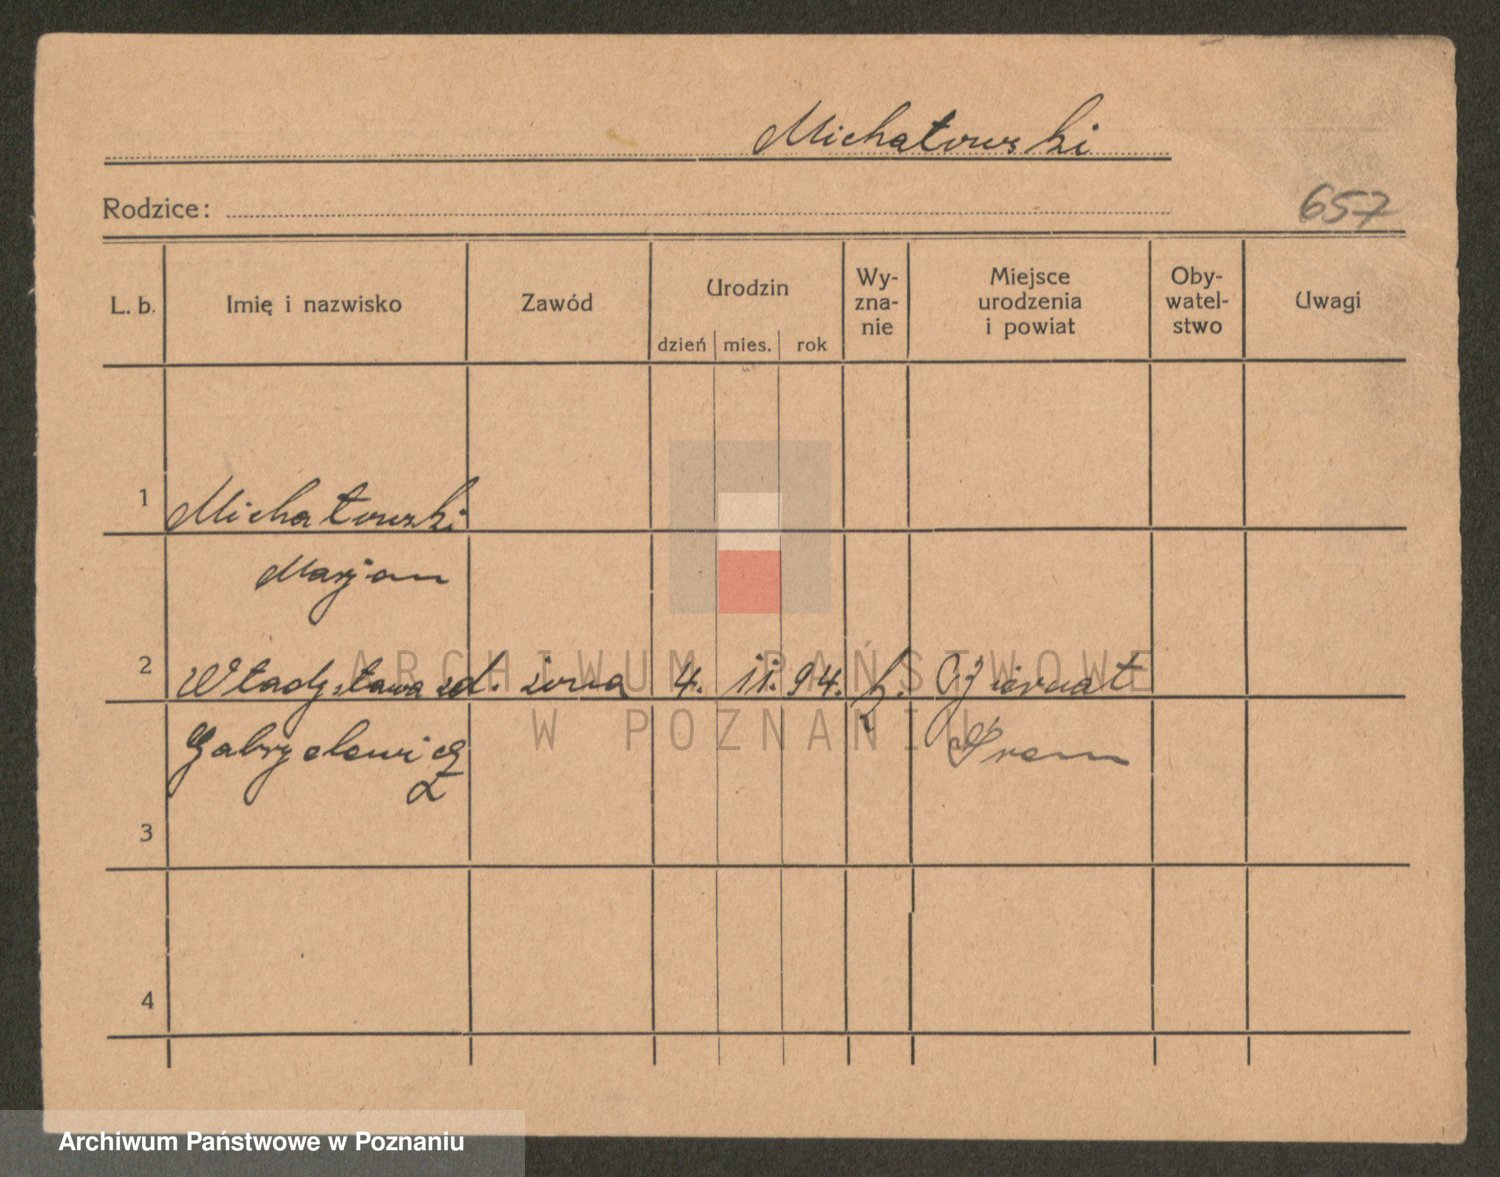 Michałowski
Rodzice:
657
L. b.
Imię i nazwisko
Zawód
Urodzin
dzień mies. rok
Wy-
zna-
nie
Miejsce
urodzenia
i powiat
Oby-
watel-
stwo
Uwagi
1 Michałowski
Marjan
2 Władysława zd. żona 4. 11. 94. k.
Gabryelewicz
Śrem
3
4
ARCHIWUM PAŃSTWOWE
W POZNANIU
Archiwum Państwowe w Poznaniu